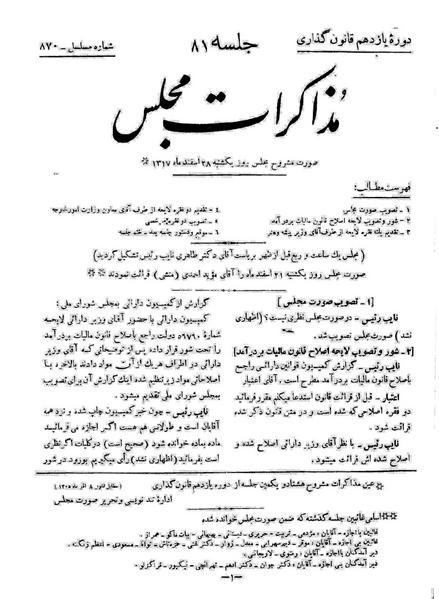 دورهٔ یازدهم قانون گذاری
جلسه ۸۱
شماره مسلسل - ۸۷۰
مذاکرات مجلس
صورت مشروح مجلس روز یکشنبه ۲۸ اسفند ماه ۱۳۱۷
فهرست مطالب:
۱ - تصویب صورت مجلس
۲ - شور و تصویب لایحه اصلاح قانون مالیات بر درآمد
۳ - تقدیم یک فقره لایحه از طرف آقای وزیر پیشه و هنر
۴ - تقدیم دو فقره لایحه از طرف آقای معاون وزارت امور خارجه
۵ - تصویب دو فقره مرخصی
۶ - موقع و دستور جلسه بعد - ختم جلسه
(مجلس یک ساعت و ربع قبل از ظهر بریاست آقای دکتر طاهری نایب رئیس تشکیل گردید)
صورت مجلس روز یکشنبه ۲۱ اسفند ماه را آقای مؤید احمدی (منشی) قرائت نمودند
[۱ - تصویب صورت مجلس]
نایب رئیس - در صورت مجلس نظری نیست؟ (اظهاری
نشد) صورت مجلس تصویب شد.
[۲ - شور و تصویب لایحه اصلاح قانون مالیات بر درآمد]
نایب رئیس - گزارش کمیسیون قوانین دارائی راجع
باصلاح قانون مالیات بر درآمد مطرح است. آقای اعتبار
اعتبار - قبل از قرائت قانون استدعا میکنم مقرر فرمائید
دو فقره اصلاحی که شده است و در متن قانون ذکر شده
قرائت شود.
نایب رئیس - با نظر آقای وزیر دارائی اصلاح شده و
اصلاح شده اش قرائت میشود.
گزارش از کمیسیون دارائی بمجلس شورای ملی:
کمیسیون دارائی با حضور آقای وزیر دارائی لایحه
شمارهٔ ۵۷۹۰۱ دولت راجع باصلاح قانون مالیات بر درآمد
را تحت شور قرار داده پس از توضیحاتی که آقای وزیر
دارائی در اطراف هر یک از آن مواد دادند بالاخره با
اصلاحاتی مواد زیر تنظیم شده اینک گزارش آن برای تصویب
مجلس شورای ملی تقدیم میشود.
نایب رئیس - چون خبر کمیسیون چاپ شده و نزد همه
آقایان است و طولانی هم هست اگر اجازه می فرمائید
ماده بماده خوانده شود (صحیح است) در کلیات اگر نظری
است بفرمائید (اظهاری نشد) رأی میگیریم بورود در شور
عین مذاکرات مشروح هشتاد و یکمین جلسه از دوره یازدهم قانون گذاری
(مطابق قانون ۸ آذر ماه ۱۳۰۵)
ادارهٔ تند نویسی و تحریر صورت مجلس
اسامی غائبین جلسهٔ گذشته که ضمن صورت مجلس خوانده شده
غائبین با اجازه - آقایان:
غائبین بی اجازه - آقایان:
دیر آمدگان با اجازه - آقایان:
دیر آمدگان بی اجازه - آقایان:
-۱-